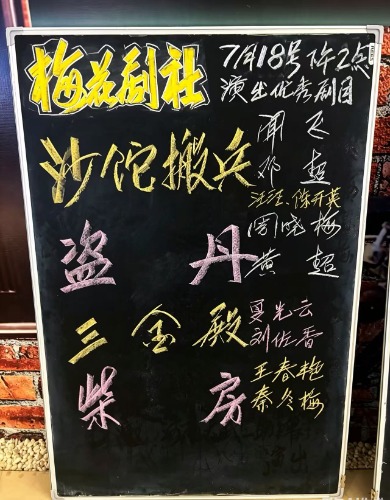 梅花剧社
7月18号下午2点
演出优秀剧目
沙佗搬兵
闻飞
邓超
汪汪、陈开英
盗丹
周晓梅
黄超
三金殿
夏光云
刘佐香
柴房
王春艳
秦冬梅